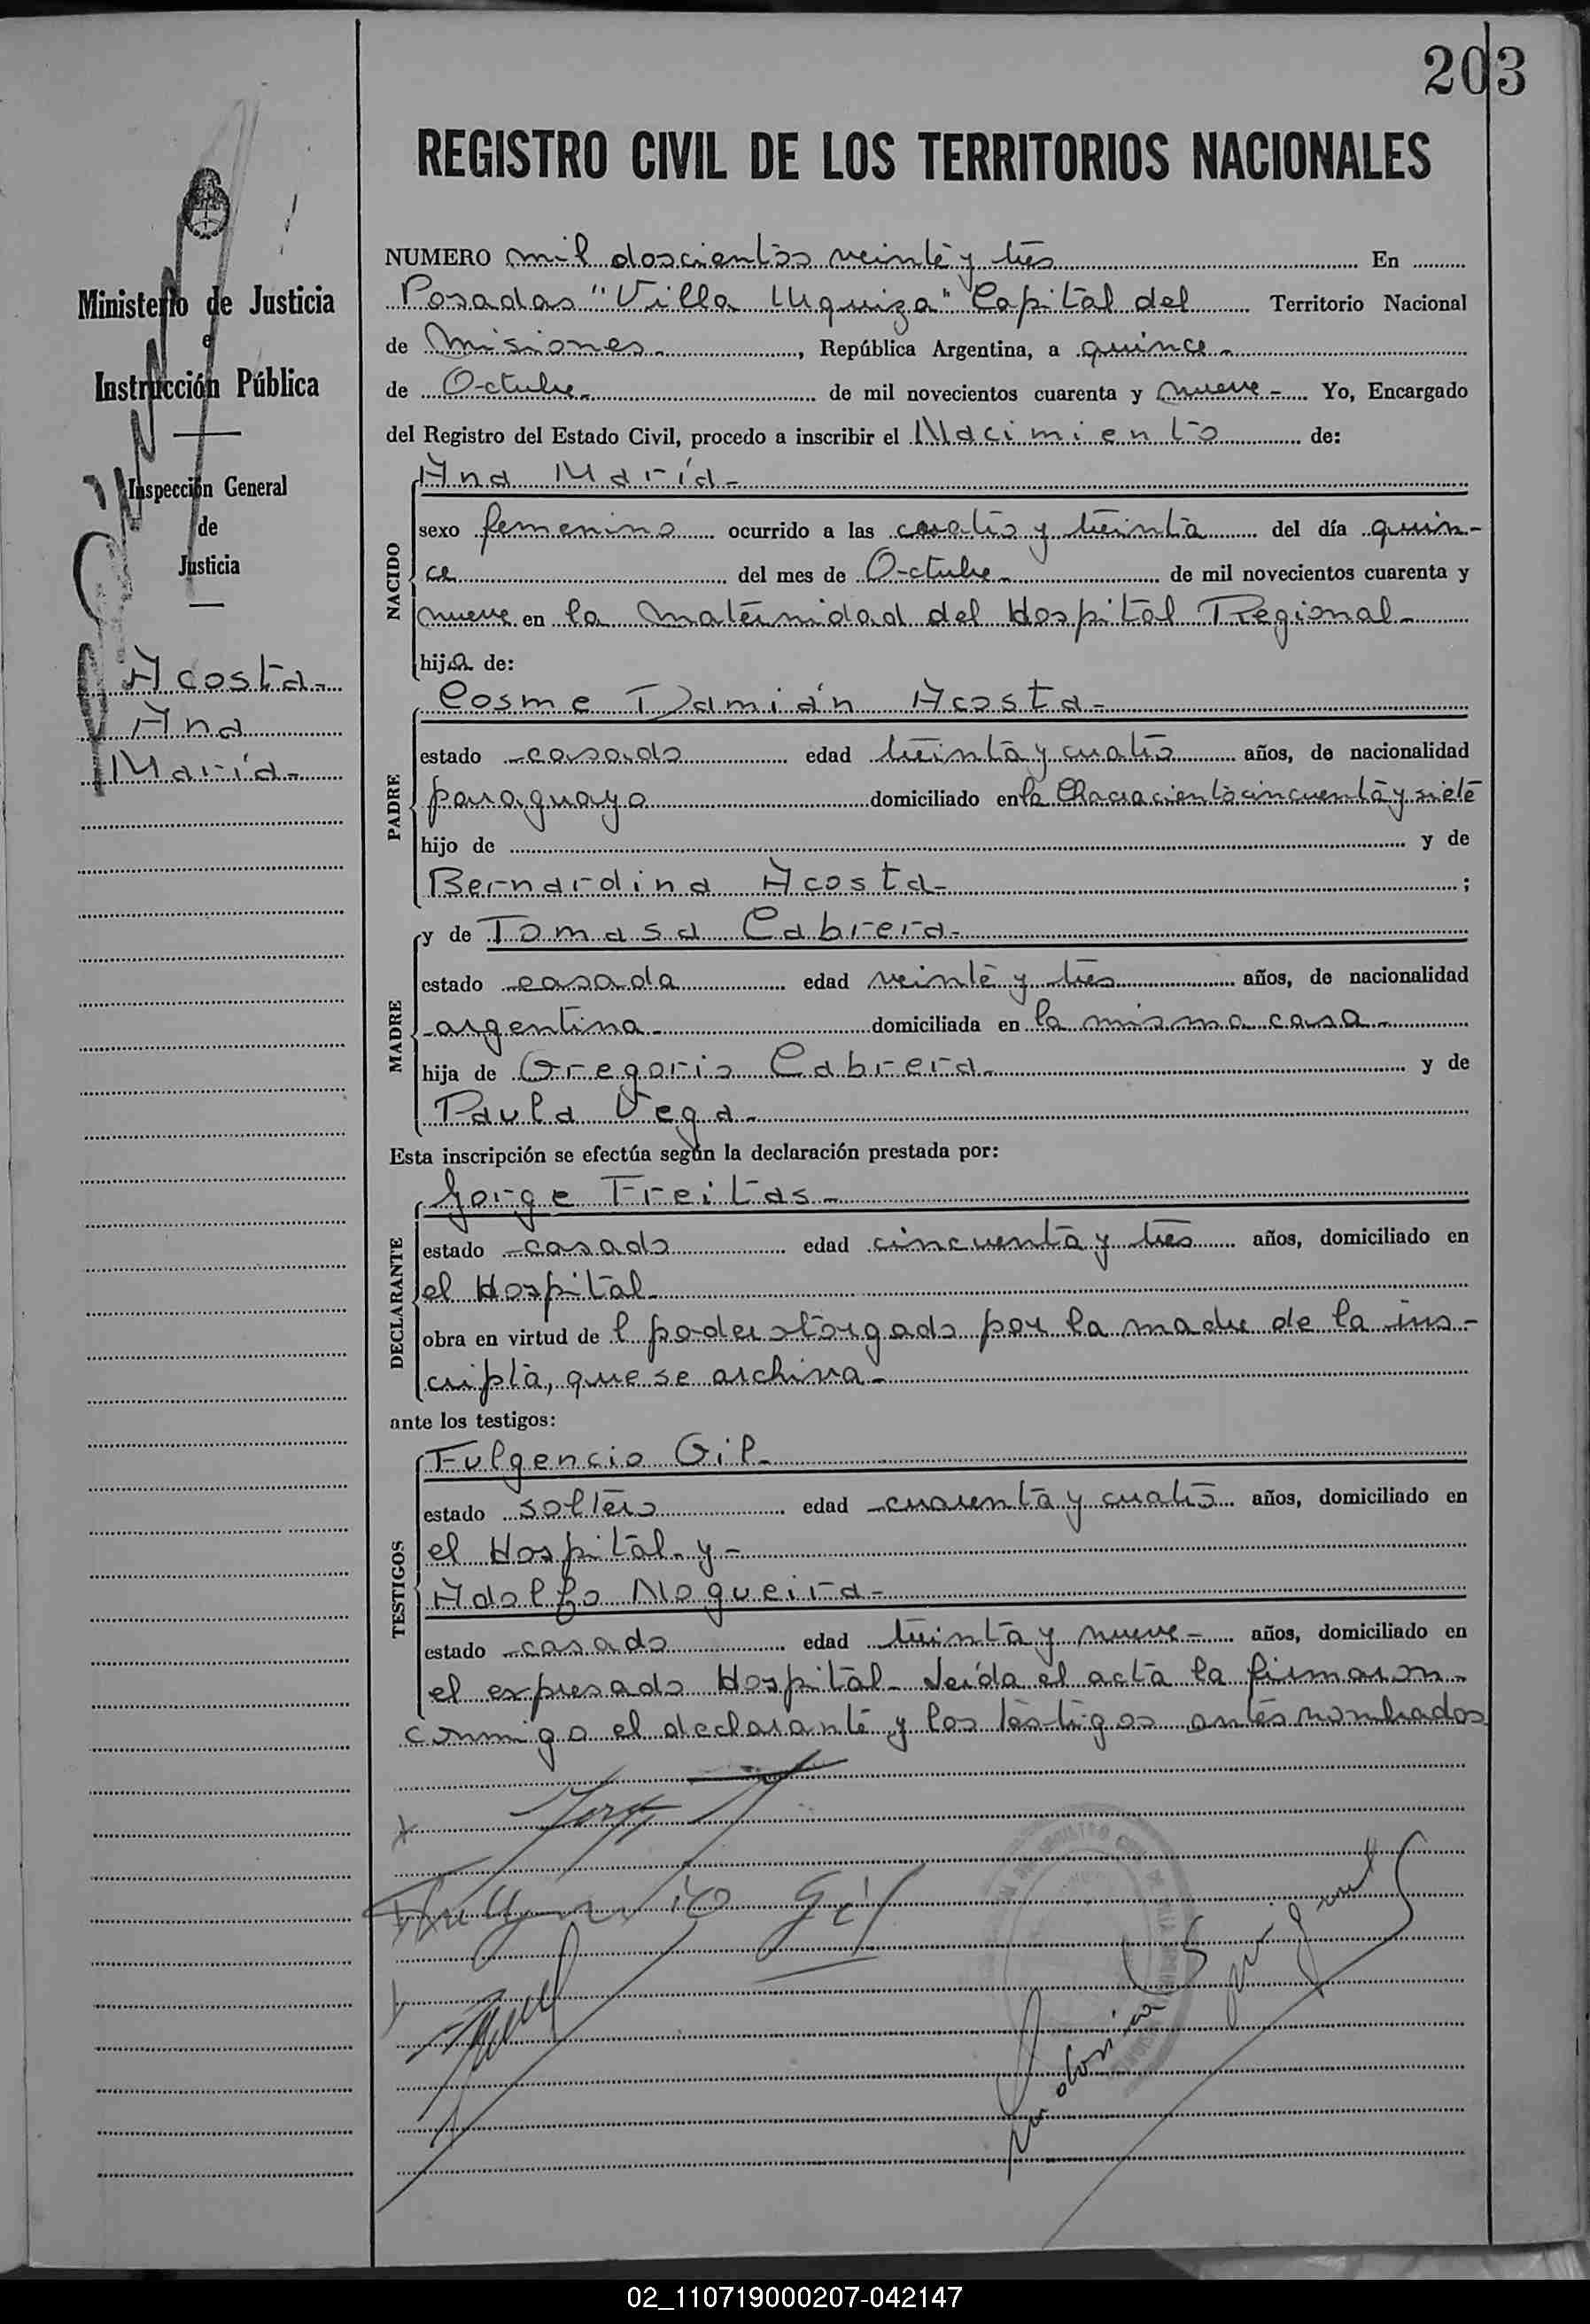 203
REGISTRO CIVIL DE LOS TERRITORIOS NACIONALES
Ministerio de Justicia
e
Instrucción Pública
Inspección General
de
Justicia
Acosta-
Ana
María-
NUMERO mil doscientos veinte y tres En
Posadas "Villa Urquiza" Capital del Territorio Nacional
de Misiones-, República Argentina, a quince-
de Octubre- de mil novecientos cuarenta y nueve- Yo, Encargado
del Registro del Estado Civil, procedo a inscribir el Nacimiento de:
Ana María-
NACIDO
sexo femenino ocurrido a las cuatro y treinta del día quin-
ce del mes de Octubre- de mil novecientos cuarenta y
nueve en la maternidad del Hospital Regional-
hija de:
Cosme Damián Acosta-
PADRE
estado casado edad treinta y cuatro años, de nacionalidad
paraguaya domiciliado en la Chacra ciento cincuenta y siete
hijo de y de
Bernardina Acosta- ;
y de Tomasa Cabrera-
MADRE
estado casada edad veinte y tres años, de nacionalidad
argentina- domiciliada en la misma casa-
hija de Gregorio Cabrera- y de
Paula Vega-
Esta inscripción se efectúa según la declaración prestada por:
Jorge Freitas-
DECLARANTE
estado casado edad cincuenta y tres años, domiciliado en
el Hospital-
obra en virtud de l poder otorgado por la madre de la ins-
cripta, que se archiva-
ante los testigos:
Fulgencio Gil-
TESTIGOS
estado soltero edad cuarenta y cuatro años, domiciliado en
el Hospital- y-
Adolfo Nogueira-
estado casado edad treinta y nueve- años, domiciliado en
el expresado Hospital- Leída el acta la firmaron-
conmigo el declarante y los testigos antes nombrados
Fulgencio Gil
02_110719000207-042147